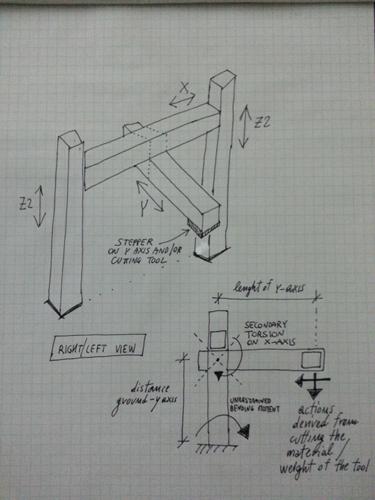 X
Z2
Z2
Y
STEPPER
ON Y AXIS AND/OR
CUTTING TOOL
RIGHT/LEFT VIEW
lenght of Y-axis
SECONDARY
TORSION
ON X-AXIS
distance
ground-y axis
UNRESTRAINED
BENDING MOMENT
actions
derived from
cutting the
material/
weight of the tool